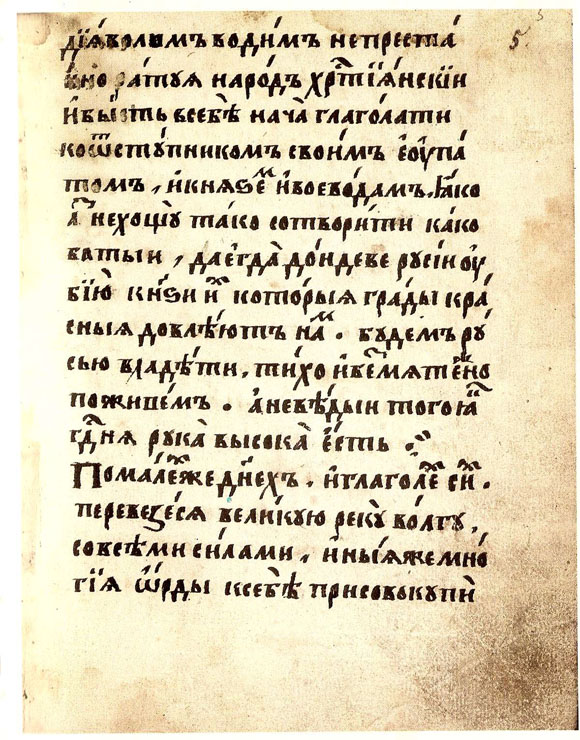 5
дїѧ́волимъ води́мъ непреста́
нно ра́туѧ наро́дъ хрⷭ҇тїѧ́нскїи
и҆бы́сть всебѣ̀ нача̀ глаго́лати
коѿсту́пникомъ свои́мъ є҆ѹпа́
томъ, и҆кнѧзе́ⷨ и҆воево́дамъ. ꙗ҆́ко
а҆́ⷥ нехощꙋ̀ та́ко сотвори́ти ка́ко
батыи, даегда̀ до́идеве русїи ѹ҆
бїю̀ кн҃ѕи и҆ⷯ кото́рыѧ гра́ды кра́
сныѧ довлѣ́ютъ на́ⷨ. бу́демъ ру́
сью владѣ́ти, ти́хо и҆беⷥмѧте́жно
поживе́мъ. а҆невѣ́дыи того̀ ꙗ҆́ⷦ
гдⷭ҇нѧ рука̀ высока̀ є҆́сть
Помале́ⷯже дн҃ехъ. и҆глаго́леⷯ си́ⷯ.
перевезе́сѧ вели́кую реку̀ во́лгу,
совсѣ́ми си́лами, и҆ны́ѧжемно́
гїѧ ѻ҆рды̀ ксебѣ̀ присовокупѝ